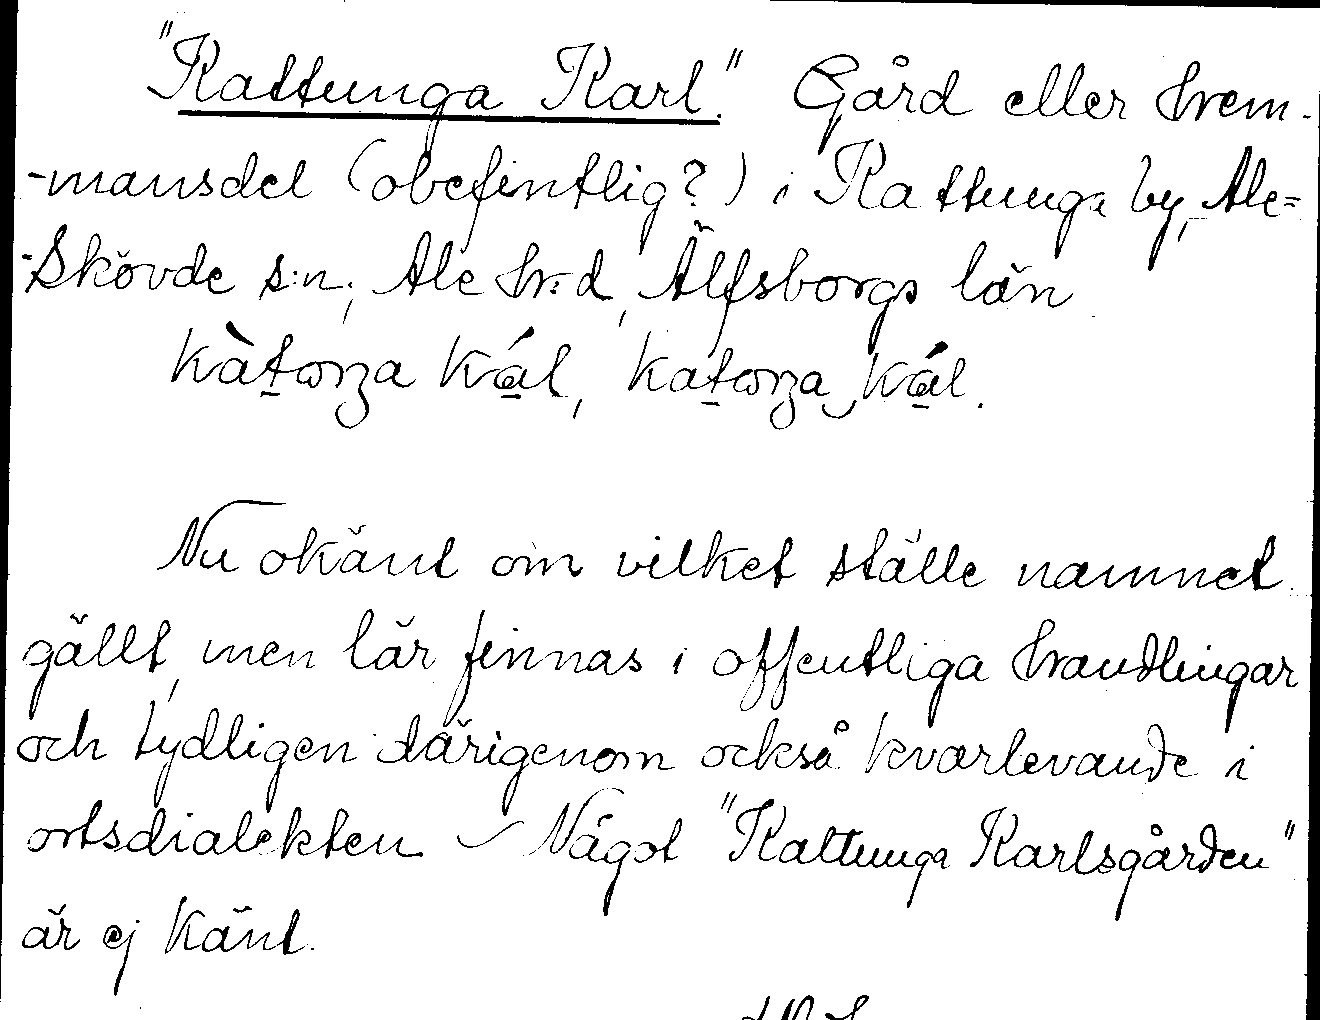 "Kattunga Karl." Gård eller hem-
-mansdel (obefintlig?) i Kattunga by, Ale-
-Skövde s:n, Ale h:d, Älfsborgs län
Nu okänt om vilket ställe namnet
gällt, men lär finnas i offentliga handlingar
och tydligen därigenom också kvarlevande i
ortsdialekten – Något "Kattunga Karlsgården"
är ej känt.